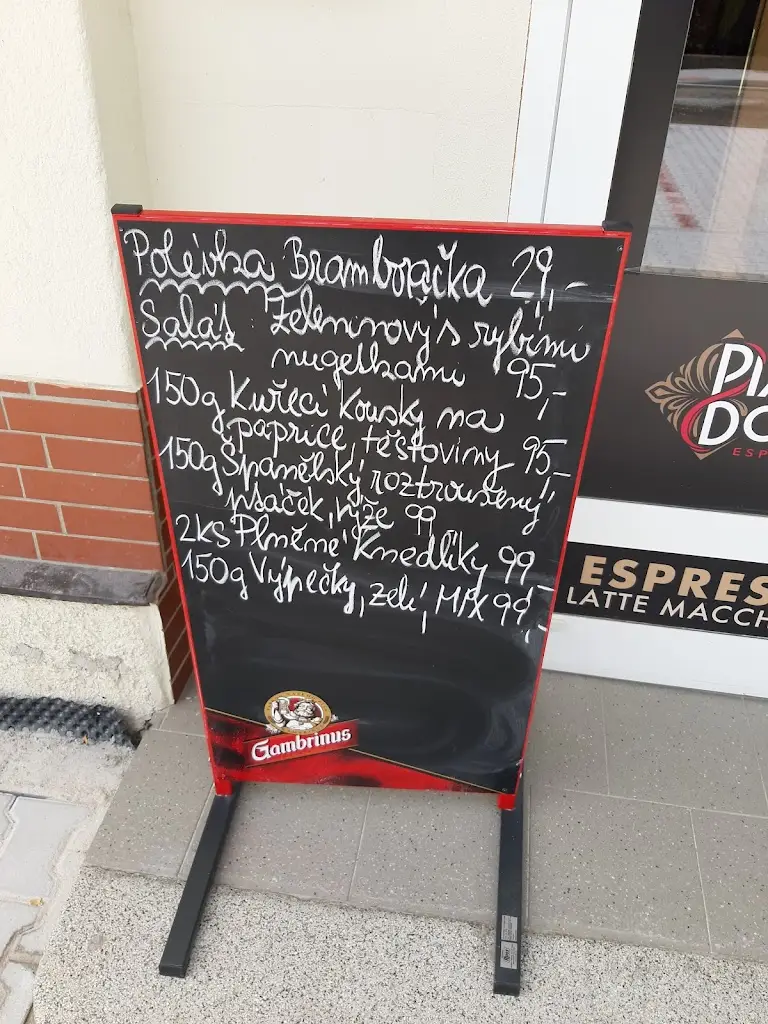 Polévka Bramboračka 29,-
Salát Zeleninový s rybími
nugetkami 95,-
150g Kuřecí kousky na
paprice, těstoviny 95,-
150g Španělský roztroušený
ptáček, rýže 99,-
2ks Plněné Knedlíky 99,-
150g Výpečky, zelí, MIX 99,-
Gambrinus
ESPRES
LATTE MACCH